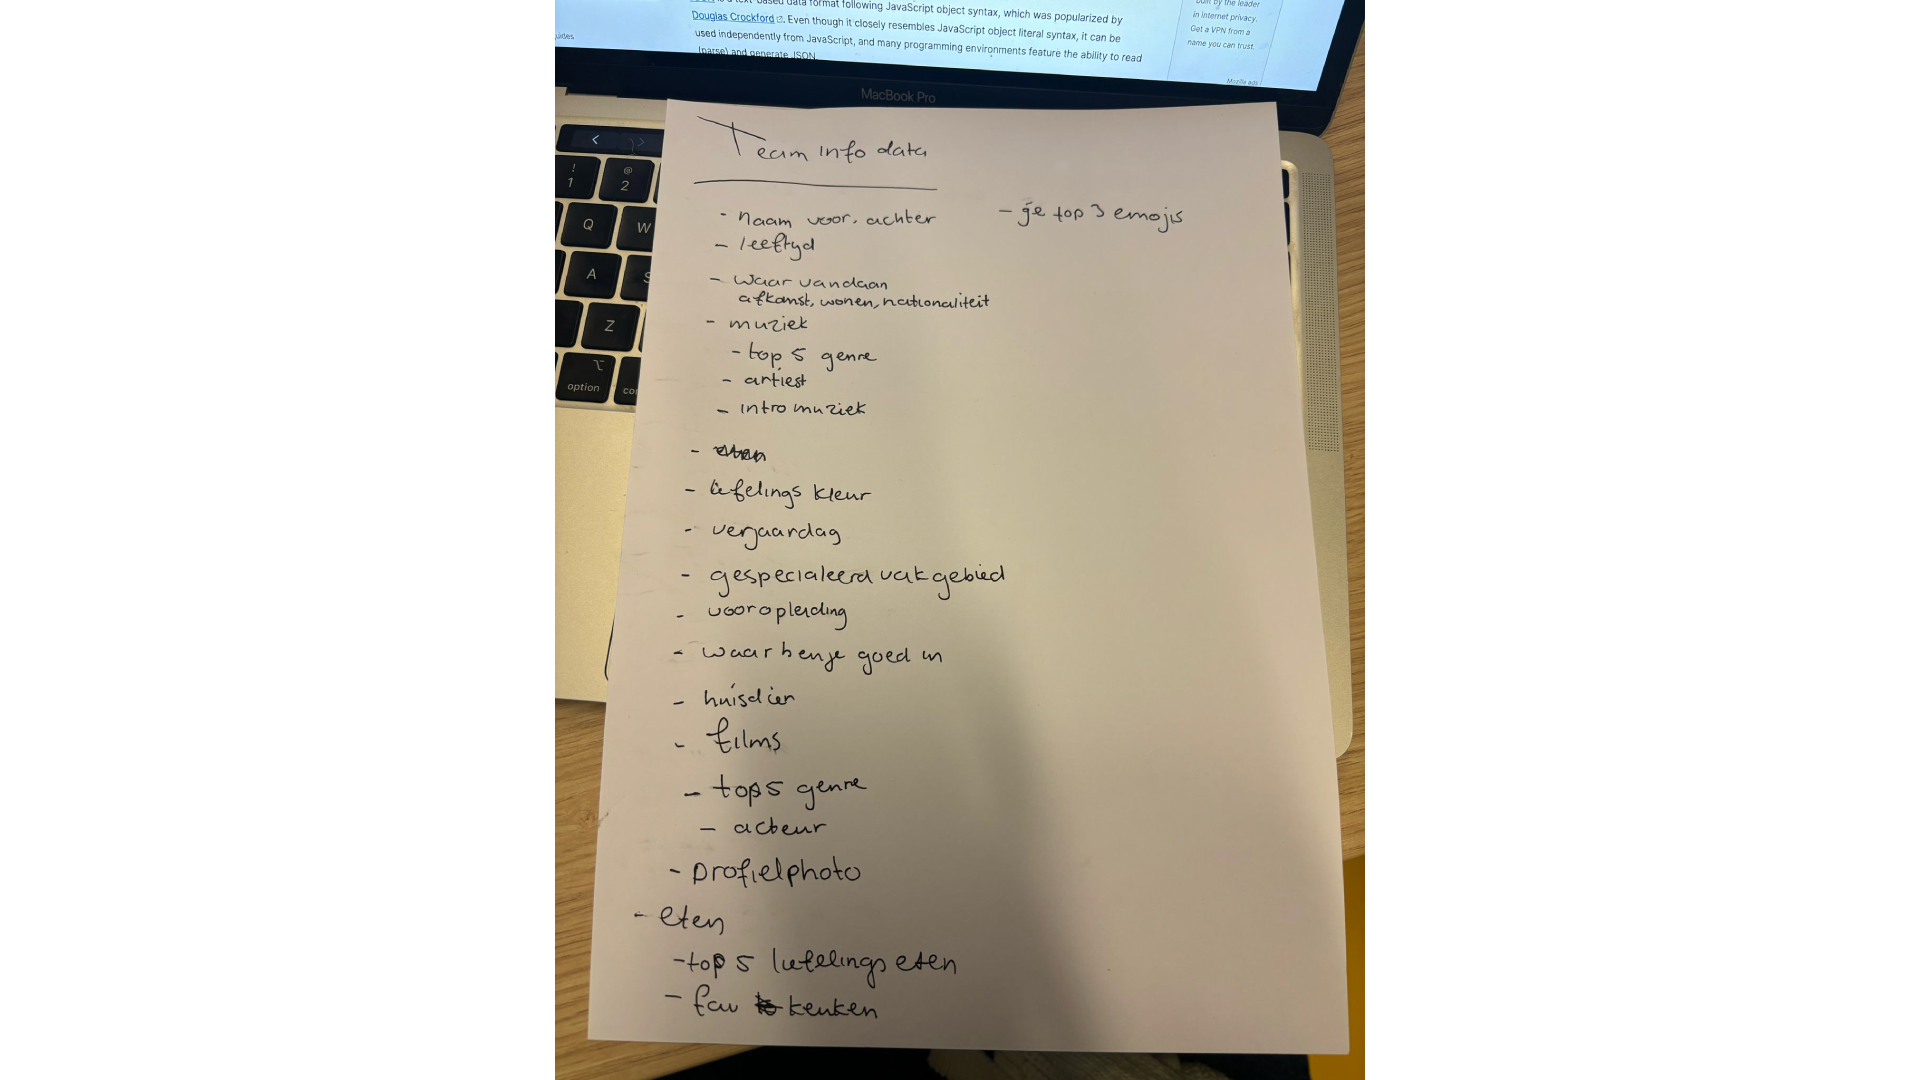 is a text-based data format following JavaScript object syntax, which was popularized by
Douglas Crockford. Even though it closely resembles JavaScript object literal syntax, it can be
used independently from JavaScript, and many programming environments feature the ability to read
(parse) and generate JSON.
uides
built by the leader
in internet privacy.
Get a VPN from a
name you can trust.
Mozilla ads
MacBook Pro
Team info data
- naam voor. achter
- leeftyd
- waar vandaan
afkomst, wonen, nationaliteit
- muziek
- top 5 genre
- artiest
- intro muziek
-
- liefelings kleur
- verjaardag
- gespecialeerd vakgebied
- vooropleiding
- waar ben je goed in
- huisdier
- films
- top 5 genre
- acteur
- profielphoto
- eten
- top 5 liefelings eten
- fav keuken
- je top 3 emojis
! 1
@ 2
Q
W
A
S
Z
option